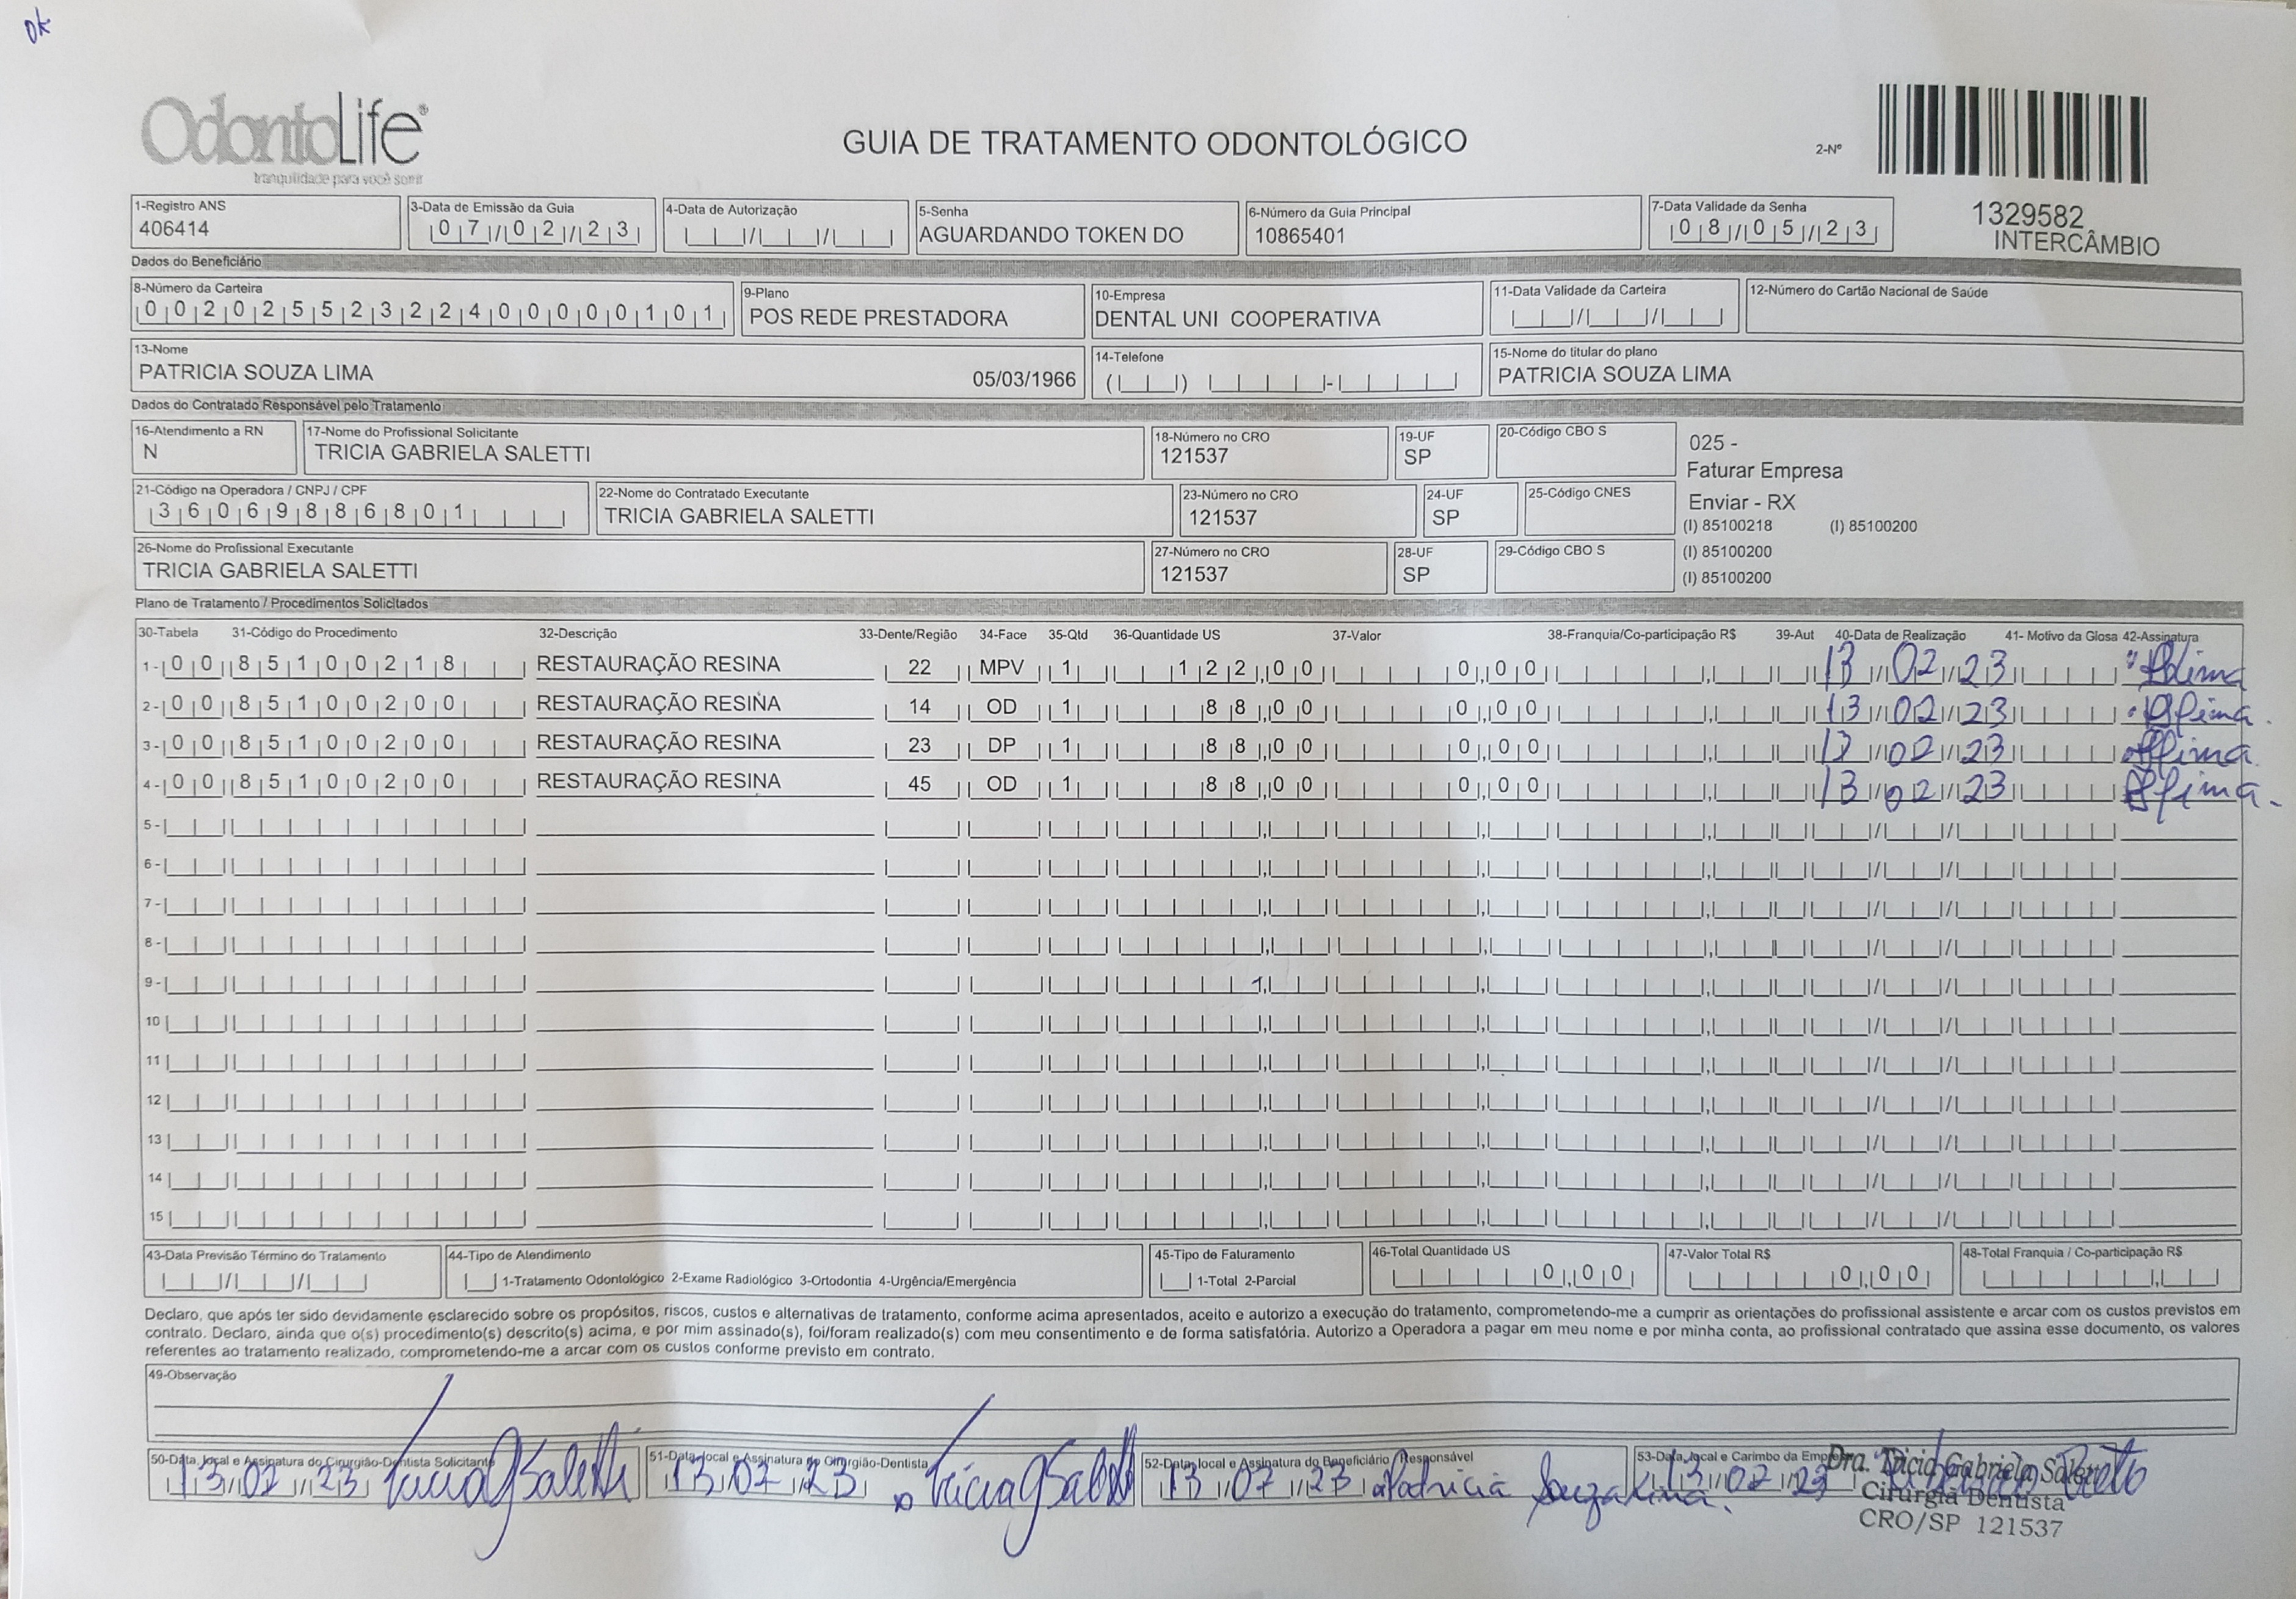 ok
OdontoLife®
tranquilidade para você sorrir
GUIA DE TRATAMENTO ODONTOLÓGICO
2-Nº
1329582
INTERCÂMBIO
1-Registro ANS
406414
3-Data de Emissão da Guia
07/02/23
4-Data de Autorização
5-Senha
AGUARDANDO TOKEN DO
6-Número da Guia Principal
10865401
7-Data Validade da Senha
08/05/23
Dados do Beneficiário
8-Número da Carteira
00202552322400000101
9-Plano
POS REDE PRESTADORA
10-Empresa
DENTAL UNI COOPERATIVA
11-Data Validade da Carteira
12-Número do Cartão Nacional de Saúde
13-Nome
PATRICIA SOUZA LIMA 05/03/1966
14-Telefone
15-Nome do titular do plano
PATRICIA SOUZA LIMA
Dados do Contratado Responsável pelo Tratamento
16-Atendimento a RN
N
17-Nome do Profissional Solicitante
TRICIA GABRIELA SALETTI
18-Número no CRO
121537
19-UF
SP
20-Código CBO S
025 -
Faturar Empresa
21-Código na Operadora / CNPJ / CPF
36069886801
22-Nome do Contratado Executante
TRICIA GABRIELA SALETTI
23-Número no CRO
121537
24-UF
SP
25-Código CNES
Enviar - RX
(I) 85100218 (I) 85100200
26-Nome do Profissional Executante
TRICIA GABRIELA SALETTI
27-Número no CRO
121537
28-UF
SP
29-Código CBO S
(I) 85100200
(I) 85100200
Plano de Tratamento / Procedimentos Solicitados
30-Tabela 31-Código do Procedimento 32-Descrição 33-Dente/Região 34-Face 35-Qtd 36-Quantidade US 37-Valor 38-Franquia/Co-participação R$ 39-Aut 40-Data de Realização 41- Motivo da Glosa 42-Assinatura
1- 00 85100218 RESTAURAÇÃO RESINA 22 MPV 1 122,00 0,00 13/02/23 Plima
2- 00 85100200 RESTAURAÇÃO RESINA 14 OD 1 88,00 0,00 13/02/23 Plima.
3- 00 85100200 RESTAURAÇÃO RESINA 23 DP 1 88,00 0,00 13/02/23 Plima.
4- 00 85100200 RESTAURAÇÃO RESINA 45 OD 1 88,00 0,00 13/02/23 Plima.
5-
6-
7-
8-
9-
10
11
12
13
14
15
43-Data Previsão Término do Tratamento
44-Tipo de Atendimento
1-Tratamento Odontológico 2-Exame Radiológico 3-Ortodontia 4-Urgência/Emergência
45-Tipo de Faturamento
1-Total 2-Parcial
46-Total Quantidade US
0,00
47-Valor Total R$
0,00
48-Total Franquia / Co-participação R$
Declaro, que após ter sido devidamente esclarecido sobre os propósitos, riscos, custos e alternativas de tratamento, conforme acima apresentados, aceito e autorizo a execução do tratamento, comprometendo-me a cumprir as orientações do profissional assistente e arcar com os custos previstos em
contrato. Declaro, ainda que o(s) procedimento(s) descrito(s) acima, e por mim assinado(s), foi/foram realizado(s) com meu consentimento e de forma satisfatória. Autorizo a Operadora a pagar em meu nome e por minha conta, ao profissional contratado que assina esse documento, os valores
referentes ao tratamento realizado, comprometendo-me a arcar com os custos conforme previsto em contrato.
49-Observação
50-Data, local e Assinatura do Cirurgião-Dentista Solicitante
13/02/23 TriciaGSaletti
51-Data, local e Assinatura do Cirurgião-Dentista
13/02/23 TriciaGSaletti
52-Data, local e Assinatura do Beneficiário Responsável
13/02/23 Patricia Souza Lima.
53-Data, local e Carimbo da Empresa
13/02/23
Dra. Tricia Gabriela Saletti
Cirurgiã Dentista
CRO/SP 121537